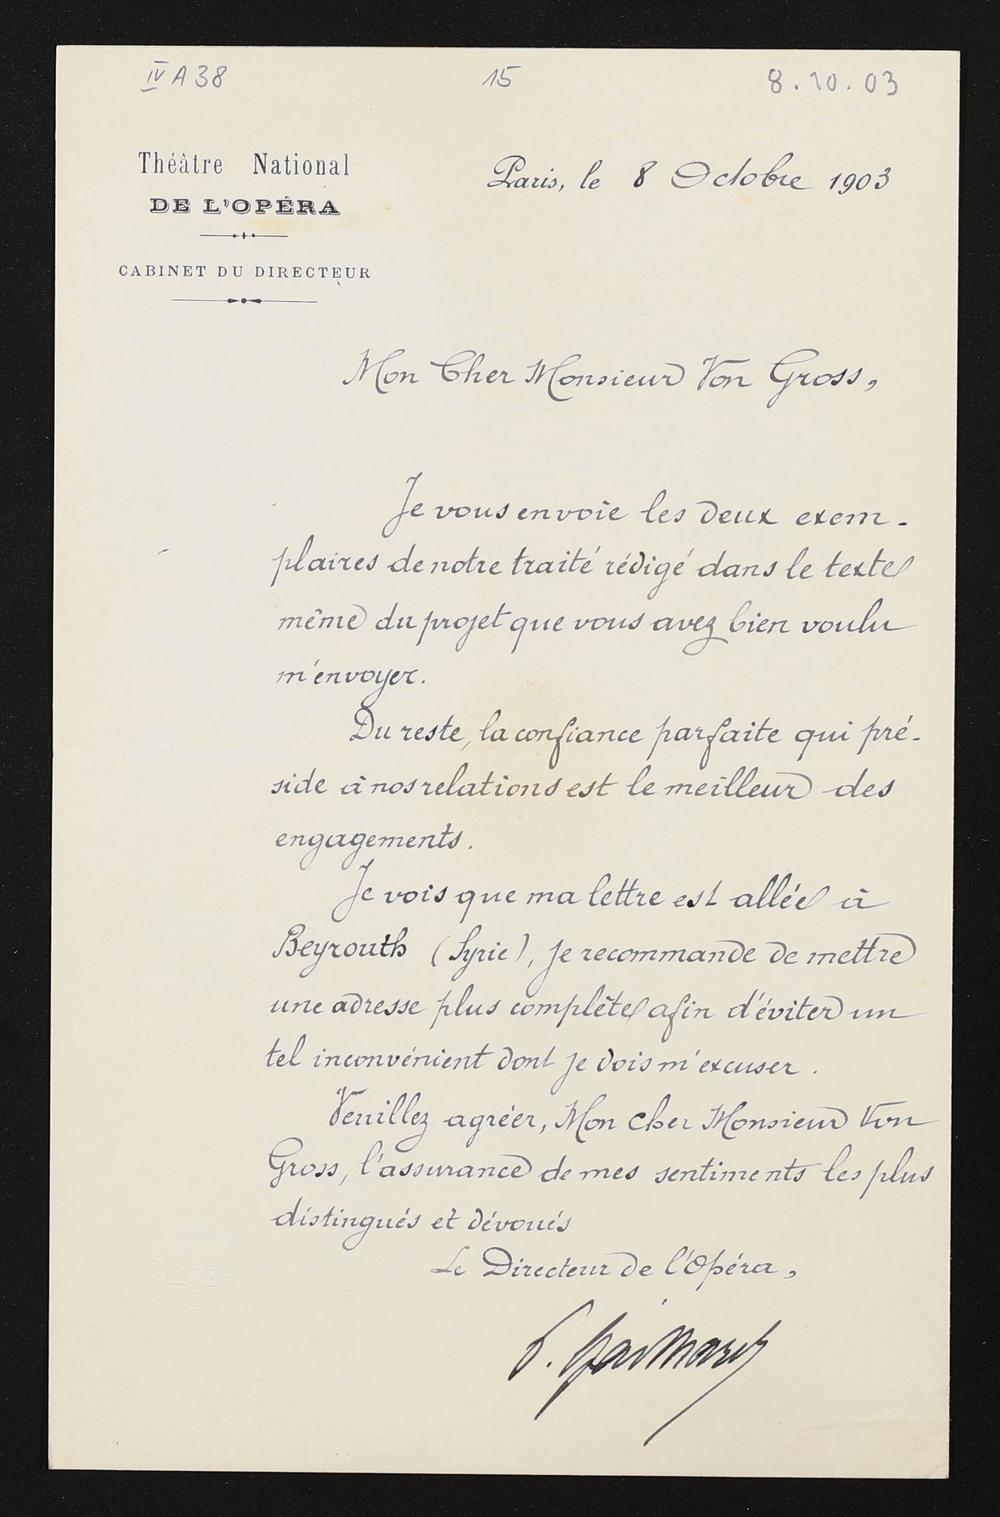 IV A 38
15
8.10.03
Théâtre National
DE L'OPÉRA
CABINET DU DIRECTEUR
Paris, le 8 Octobre 1903
Mon Cher Monsieur Von Gross,
Je vous envoie les deux exem-
plaires de notre traité rédigé dans le texte
même du projet que vous avez bien voulu
m'envoyer.
Du reste, la confiance parfaite qui pré-
side à nos relations est le meilleur des
engagements.
Je vois que ma lettre est allée à
Beyrouth (Syrie), je recommande de mettre
une adresse plus complète afin d'éviter un
tel inconvénient dont je dois m'excuser.
Veuillez agréer, Mon cher Monsieur Von
Gross, l'assurance de mes sentiments les plus
distingués et dévoués
Le Directeur de l'Opéra,
P. Gailhard